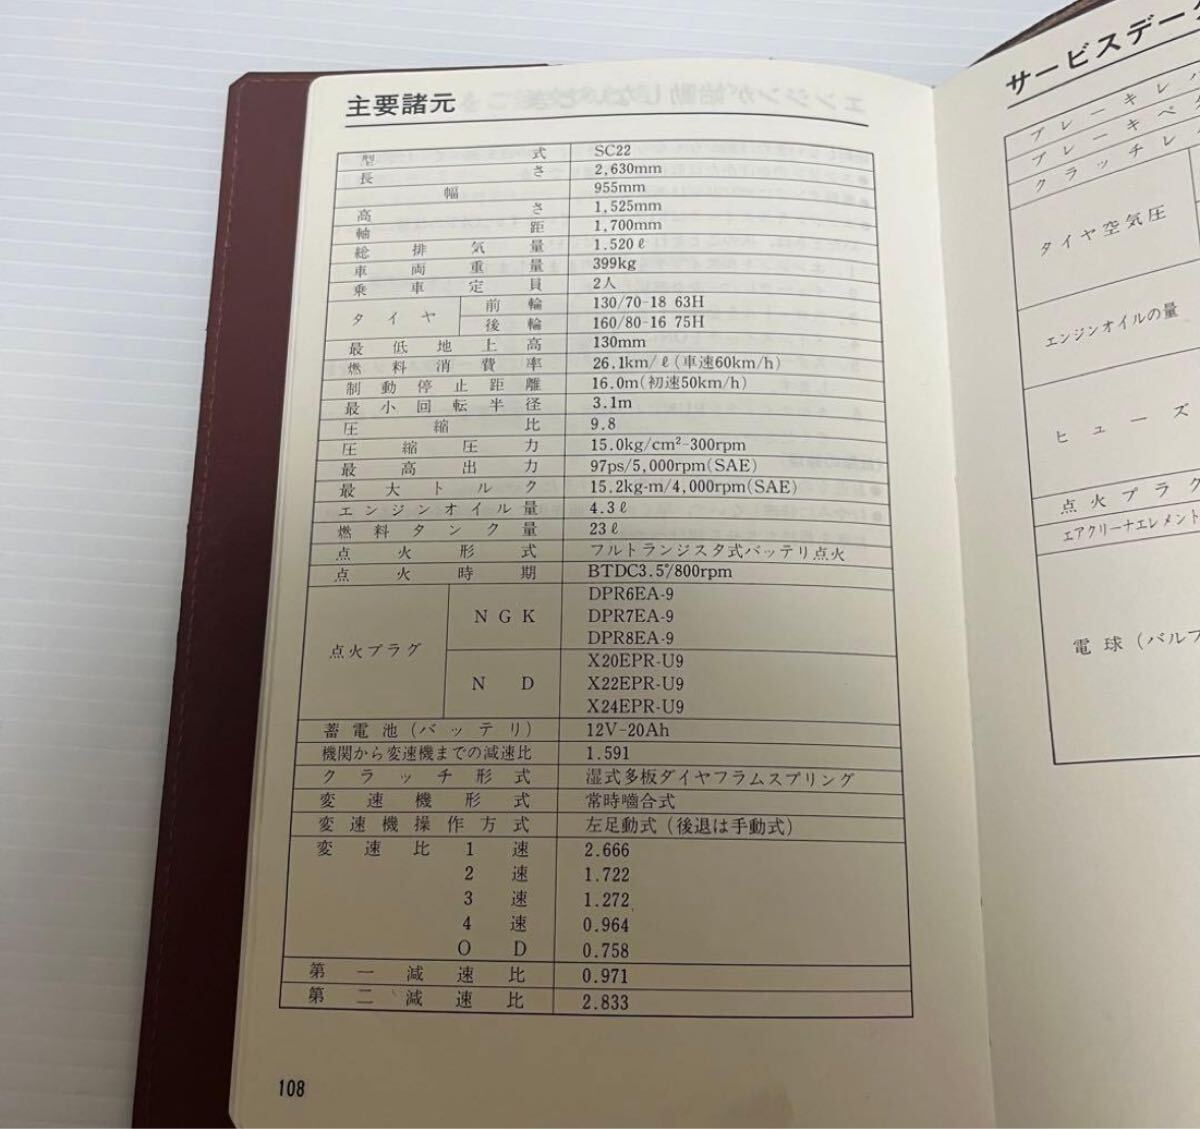 主要諸元
型式 SC22
長さ 2,630mm
幅 955mm
高さ 1,525mm
軸距 1,700mm
総排気量 1.520ℓ
車両重量 399kg
乗車定員 2人
タイヤ 前輪 130/70-18 63H
後輪 160/80-16 75H
最低地上高 130mm
燃料消費率 26.1km/ℓ(車速60km/h)
制動停止距離 16.0m(初速50km/h)
最小回転半径 3.1m
圧縮比 9.8
圧縮圧力 15.0kg/cm²-300rpm
最高出力 97ps/5,000rpm(SAE)
最大トルク 15.2kg-m/4,000rpm(SAE)
エンジンオイル量 4.3ℓ
燃料タンク量 23ℓ
点火形式 フルトランジスタ式バッテリ点火
点火時期 BTDC3.5°/800rpm
点火プラグ NGK DPR6EA-9
DPR7EA-9
DPR8EA-9
ND X20EPR-U9
X22EPR-U9
X24EPR-U9
蓄電池(バッテリ) 12V-20Ah
機関から変速機までの減速比 1.591
クラッチ形式 湿式多板ダイヤフラムスプリング
変速機形式 常時嚙合式
変速機操作方式 左足動式(後退は手動式)
変速比 1速 2.666
2速 1.722
3速 1.272
4速 0.964
OD 0.758
第一減速比 0.971
第二減速比 2.833
108
サービスデー
ブレーキレ
ブレーキペ
クラッチレ
タイヤ空気圧
エンジンオイルの量
ヒューズ
点火プラグ
エアクリーナエレメント
電球(バルブ